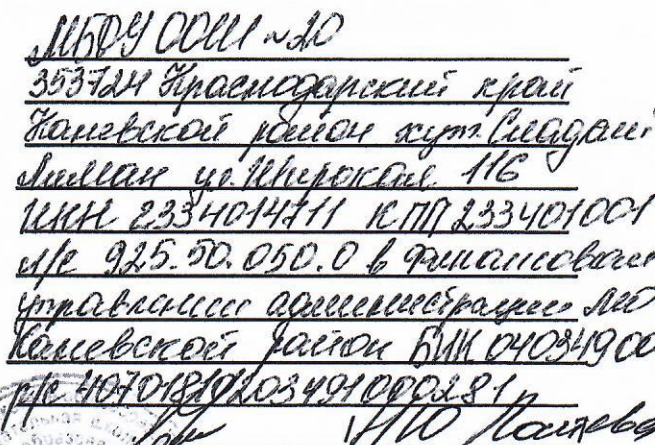 МБОУ ООШ №20
353724 Краснодарский край
Каневской район хут. Сладкий
Лиман ул. Широкая 116
ИНН 2334014711 КПП 233401001
л/с 925.50.050.0 в Финансовом
управлении администрации МО
Каневской район БИК 04034900
р/с 40701810203491000281